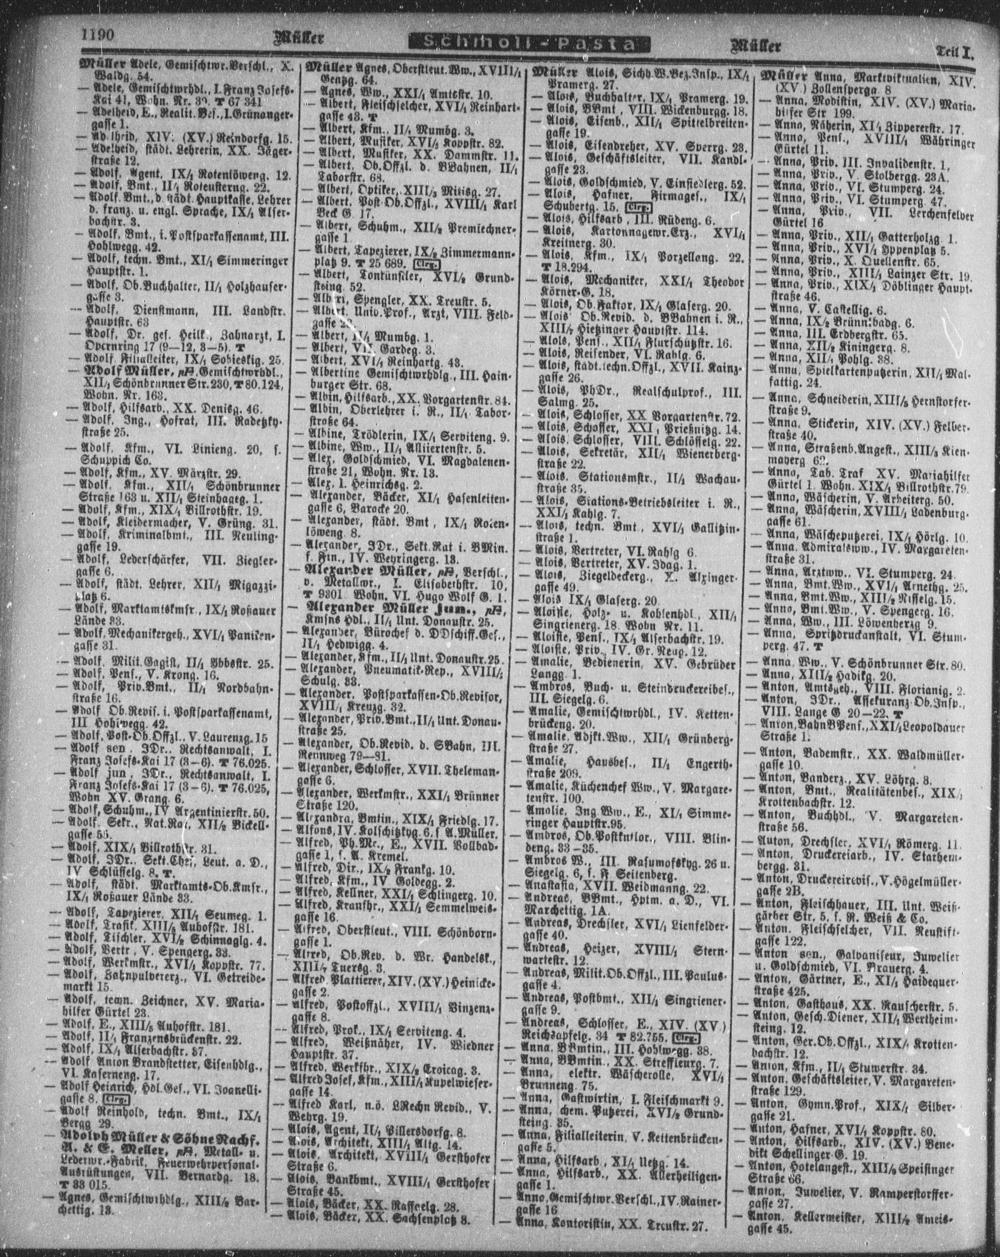 1190
Müller
Schmoll-Pasta
Müller
Teil I.
Müller Adele, Gemischtwr.Verschl., X.
Waldg. 54.
— Adele, Gemischtwrhdl., I. Franz Josefs-
Kai 41, Wohn. Nr. 39. T 67 341
— Adelheid, E., Realit.Bes., I.Grünanger-
gasse 1.
— Adelheid, XIV. (XV.) Reindorfg. 15.
— Adelheid, städt. Lehrerin, XX. Jäger-
straße 12.
— Adolf, Agent, IX/1 Rotenlöweng. 12.
— Adolf, Bmt., II/1 Rotensterng. 22.
— Adolf, Bmt., d. städt. Hauptkasse, Lehrer
d. franz. u. engl. Sprache, IX/1 Alser-
bachstr. 3.
— Adolf, Bmt., i. Postsparkassenamt, III.
Hohlwegg. 42.
— Adolf, techn. Bmt., XI/1 Simmeringer
Hauptstr. 1.
— Adolf, Ob.Buchhalter, II/1 Holzhauser-
gasse 3.
— Adolf, Dienstmann, III. Landstr.
Hauptstr. 63
— Adolf, Dr. ges. Heilk., Zahnarzt, I.
Opernring 17 (9—12, 3—5). T
— Adolf, Filialleiter, IX/1 Sobieskig. 25.
— Adolf Müller, Gemischtwrhdl.,
XII/1 Schönbrunner Str.230, T 80.124,
Wohn. Nr. 163.
— Adolf, Hilfsarb., XX. Denisg. 46.
— Adolf, Ing., Hofrat, III. Radetzky-
straße 25.
— Adolf, Kfm., VI. Linieng. 20, f.
Schuppich Co.
— Adolf, Kfm., XV. Märzstr. 29.
— Adolf, Kfm., XII/1 Schönbrunner
Straße 163 u. XII/1 Steinhageg. 1.
— Adolf, Kfm., XIX/1 Billrothstr. 19.
— Adolf, Kleidermacher, V. Grüng. 31.
— Adolf, Kriminalbmt., III. Neuling-
gasse 19.
— Adolf, Lederschärfer, VII. Ziegler-
gasse 6.
— Adolf, städt. Lehrer, XII/1 Migazzi-
platz 6.
— Adolf, Marktamtskmsr., IX/1 Roßauer
Lände 33.
— Adolf, Mechanikergeh., XVI/1 Paniken-
gasse 31.
— Adolf, Milit.Gagist, II/1 Ybbsstr. 25.
— Adolf, Pens., V. Krong. 16.
— Adolf, Priv.Bmt., II/1 Nordbahn-
straße 16.
— Adolf, Ob.Revis. i. Postsparkassenamt,
III. Hohlwegg. 42.
— Adolf, Post-Ob.Offzl., V. Laurenzg. 15
— Adolf sen., JDr., Rechtsanwalt, I.
Franz Josefs-Kai 17 (3—6). T 76.025.
— Adolf jun., JDr., Rechtsanwalt, I.
Franz Josefs-Kai 17 (3—6). T 76.025,
Wohn XV. Grang. 6.
— Adolf, Schuhm., IV. Argentinierstr. 50.
— Adolf, Sekr., Nat.Rat, XII/2 Bickell-
gasse
— Adolf, XIX/1 Billrothstr. 31.
— Adolf, JDr., Sekt.Chef, Leut. a. D.,
IV Schlüsselg. 8. T.
— Adolf, städt. Marktamts-Ob.Kmsr.,
IX/1 Roßauer Lände 33.
— Adolf, Tapezierer, XII/1 Seumeg. 1.
— Adolf, Trafik, XIII/5 Auhofstr. 181.
— Adolf, Tischler, XVI/2 Schinnaglg. 4.
— Adolf, Vertr., V. Spengerg. 33.
— Adolf, Werkmstr., XVI/1 Koppstr. 77.
— Adolf, Zahnpulvererz., VI. Getreide-
markt 15.
— Adolf, techn. Zeichner, XV. Maria-
hilfer Gürtel 23.
— Adolf, E., XIII/5 Auhofstr. 181.
— Adolf, II/1 Franzensbrückenstr. 22.
— Adolf, IX/1 Alserbachstr. 37.
— Adolf Anton Brandstetter, Eisenhdlg.,
VI. Kaserneng. 17.
— Adolf Heinrich, Hdl.Ges., VI. Joanelli-
gasse 8. Clrg.
— Adolf Reinhold, techn. Bmt., IX/1
Bergg. 29.
— Adolph Müller & Söhne Nachf.
A. & E. Meller, Metall- u.
Lederwr.-Fabrik, Feuerwehrpersonal-
Ausrüstungen, VII. Bernardg. 18.
T 33 015.
— Agnes, Gemischtwrhdlg., XIII/2 Bar-
chettig. 13.
Müller Agnes, Oberstleut.Ww., XVIII/1
Gentzg. 64.
— Agnes, Ww., XXI/1 Amtsstr. 10.
— Albert, Fleischselcher, XVI/1 Reinhart-
gasse 43. T
— Albert, Kfm., II/1 Mumbg. 3.
— Albert, Musiker, XVI/1 Koppstr. 82.
— Albert, Musiker, XX. Dammstr. 11.
— Albert, Ob.Offzl. d. BBahnen, II/1
Taborstr. 68.
— Albert, Optiker, XIII/1 Mitisg. 27.
— Albert, Post-Ob.Offzl., XVIII/1 Karl
Beck G. 17.
— Albert, Schuhm., XII/2 Premlechner-
gasse 1
— Albert, Tapezierer, IX/2 Zimmermann-
platz 9. T 25 689. Clrg.
— Albert, Tontünsler, XVI/2 Grund-
steing. 52.
— Albert, Spengler, XX. Treustr. 5.
— Albert, Univ.Prof., Arzt, VIII. Feld-
gasse
— Albert, II/1 Mumbg. 1.
— Albert, VII. Gardeg. 3.
— Albert, XVI/1 Reinhartg. 43.
— Albertine Gemischtwrhdlg., III. Hain-
burger Str. 68.
— Albin, Hilfsarb., XX. Vorgartenstr. 84.
— Albin, Oberlehrer i. R., II/1 Tabor-
straße 64.
— Albine, Trödlerin, IX/1 Serviteng. 9.
— Albine, Ww., II/1 Alliiertenstr. 5.
— Alex, Goldschmied, VI. Magdalenen-
straße 21, Wohn. Nr. 13.
— Alex, I. Heinrichsg. 2.
— Alexander, Bäcker, XI/1 Hasenleiten-
gasse 6, Baracke 20.
— Alexander, städt. Bmt., IX/1 Roten-
löweng. 8.
— Alexander, JDr., Sekt.Rat i. BMin.
f. Fin., IV. Weyringerg. 13.
— Alexander Müller, Verschl.,
v. Metallwr., I. Elisabethstr. 10,
T 9301 Wohn. VI. Hugo Wolf G. 1.
— Alexander Müller jun.,
Kmsns Hdl., II/1 Unt. Donaustr. 25.
— Alexander, Bürochef d. DDschiff.Ges.,
II/1 Hedwigg. 4.
— Alexander, Kfm., II/1 Unt. Donaustr. 25.
— Alexander, Pneumatik-Rep., XVIII/1
Schulg. 33.
— Alexander, Postsparkassen-Ob.Revisor,
XVIII/1 Kreuzg. 32.
— Alexander, Priv.Bmt., II/1 Unt. Donau-
straße 25.
— Alexander, Ob.Revid. d. SBahn, III.
Rennweg 79—81.
— Alexander, Schlosser, XVII. Theleman-
gasse 6.
— Alexander, Werkmstr., XXI/1 Brünner
Straße 120.
— Alexandra, Bmtin., XIX/1 Friedlg. 17.
— Alfons, IV. Kolschitzkyg. 6, f. A.Müller.
— Alfred, Ph.Mr., E., XVII. Vollbad-
gasse 1, f. A. Kremel.
— Alfred, Dir., IX/2 Frankg. 10.
— Alfred, Kfm., IV Goldegg. 2.
— Alfred, Kellner, XXI/1 Schlingerg. 10.
— Alfred, Kranfhr., XXI/1 Semmelweis-
gasse 16.
— Alfred, Oberstleut., VIII. Schönborn-
gasse 1.
— Alfred, Ob.Rev. d. Wr. Handelsk.,
XIII/1 Tuersg. 3.
— Alfred Plattierer, XIV. (XV.) Heinicke-
gasse 2.
— Alfred, Postoffzl., XVIII/1 Vinzenz-
gasse 8.
— Alfred, Prok., IX/1 Serviteng. 4.
— Alfred, Weißnäher, IV. Wiedner
Hauptstr. 37.
— Alfred, Werkfhr., XIX/2 Eroicag. 3.
— Alfred Josef, Kfm., XIII/1 Kupelwieser-
gasse 14.
— Alfred Karl, n.ö. LRechn Revid., V.
Wehrg. 19.
— Alois, Agent, II/1 Pillersdorfg. 8.
— Alois, Architekt, XIII/1 Altg. 14.
— Alois, Architekt, XVIII/1 Gersthofer
Straße 6.
— Alois, Bankbmt., XVIII/1 Gersthofer
Straße 45.
— Alois, Bäcker, XX. Raffaelg. 28.
— Alois, Bäcker, XX. Sachsenplatz 8.
Müller Alois, Sichh.W.Bez.Insp., IX/1
Pramerg. 27.
— Alois, Buchhalter, IX/1 Pramerg. 19.
— Alois, BBmt., VIII. Wickenburgg. 18.
— Alois, Eisenb., XII/1 Spittelbreiten-
gasse 19.
— Alois, Eisendreher, XV. Sperrg. 23.
— Alois, Geschäftsleiter, VII. Kandl-
gasse 23.
— Alois, Goldschmied, V. Einsiedlerg. 52.
— Alois, Hafner, Firmages., IX/1
Schubertg. 15. Clrg.
— Alois, Hilfsarb., III. Rüdeng. 6.
— Alois, Kartonnagewr.Erz., XVI/1
Kreitnerg. 30.
— Alois, Kfm., IX/1 Porzellang. 22.
T 18.294.
— Alois, Mechaniker, XXI/1 Theodor
Körner-G. 18.
— Alois, Ob.Faktor, IX/1 Glaserg. 20.
— Alois, Ob.Revid. d. BBahnen i. R.,
XIII/1 Hietzinger Hauptstr. 114.
— Alois, Pens., XII/1 Flurschützstr. 16.
— Alois, Reisender, VI. Rahlg. 6.
— Alois, städt.techn.Offzl., XVII. Kainz-
gasse 26.
— Alois, PhDr., Realschulprof., III.
Salmg. 25.
— Alois, Schlosser, XX. Vorgartenstr. 72.
— Alois, Schaffer, XXI, Prießnitzg. 14.
— Alois, Schlosser, VIII. Schlösselg. 22.
— Alois, Sekretär, XII/1 Wienerberg-
straße 22.
— Alois, Stationsmstr., II/1 Wachau-
straße 35.
— Alois, Stations-Betriebsleiter i. R.,
XXI/1 Kahlg. 7.
— Alois, techn. Bmt., XVI/1 Gallitzin-
straße 1.
— Alois, Vertreter, VI. Rahlg. 6.
— Alois, Vertreter, XV. Jdag. 1.
— Alois, Ziegeldeckerg., X. Alxinger-
gasse 49.
— Alois IX/1 Glaserg. 20.
— Aloisie, Holz- u. Kohlenhdl., XII/1
Singrienerg. 18. Wohn Nr. 11.
— Aloisie, Pens., IX/1 Alserbachstr. 19.
— Aloisie, Priv., IV. Gr. Neug. 12.
— Amalie, Bedienerin, XV. Gebrüder
Langg. 1.
— Ambros, Buch- u. Steindruckereibes.,
III. Siegelg. 6.
— Amalie, Gemischtwrhdl., IV. Ketten-
brückeng. 20.
— Amalie, Adjkt.Ww., XII/1 Grünberg-
straße 27.
— Amalie, Hausbes., II/1 Engerth-
straße 209.
— Amalie, Küchenchef Ww., V. Margare-
tenstr. 100.
— Amalie, Ing.Ww., E., XI/1 Simme-
ringer Hauptstr. 95.
— Ambros, Ob.Postkntlor., VIII. Blin-
deng. 33—35.
— Ambros W., III. Rasumofskyg. 26 u.
Siegelg. 6, f. F. Seitenberg.
— Anastasia, XVII. Weidmanng. 22.
— Andreas, BBmt., Hptm. a. D., VI.
Marchettig. 1A.
— Andreas, Drechsler, XVI/1 Lienfelder-
gasse 40.
— Andreas, Heizer, XVIII/1 Stern-
wartestr. 12.
— Andreas, Milit.Ob.Offzl., III. Paulus-
gasse 4.
— Andreas, Postbmt., XII/1 Singriener-
gasse 9.
— Andreas, Schlosser, E., XIV. (XV.)
Reichsapfelg. 34 T 82.755. Clrg.
— Anna, BBmtin., III. Hohlwegg. 38.
— Anna, BBmtin., XX. Streffleurg. 7.
— Anna, elektr. Wäscherolle, XVI/1
Brunneng. 75.
— Anna, Gastwirtin, I. Fleischmarkt 9.
— Anna, chem. Putzerei, XVI/2 Grund-
steing. 35.
— Anna, Filialleiterin, V. Kettenbrücken-
gasse 5.
— Anna, Hilfsarb., XI/1 Uetzg. 14.
— Anna, Hilfsarb., XX. Allerheiligen-
gasse 1.
— Anna, Gemischtwr.Verschl., IV. Rainer-
gasse 16
— Anna, Kontoristin, XX. Treustr. 27.
Müller Anna, Marktviktualien, XIV.
(XV.) Zollernsperga. 8
— Anna, Modistin, XIV. (XV.) Maria-
hilfer Str 199.
— Anna, Näherin, XI/1 Zippererstr. 17.
— Anna, Pens., XVIII/1 Währinger
Gürtel 11.
— Anna, Priv. III. Invalidenstr. 1.
— Anna, Priv., V. Stolbergg. 23A.
— Anna, Priv., VI. Stumperg. 24.
— Anna, Priv., VI. Stumperg. 47.
— Anna, Priv., VII. Lerchenfelder
Gürtel 16
— Anna, Priv., XII/1 Gatterholzg. 1.
— Anna, Priv., XVI/1 Yppenplatz 5.
— Anna, Priv., X. Quellenstr. 65.
— Anna, Priv., XIII/1 Lainzer Str. 19.
— Anna, Priv., XIX/1 Döblinger Haupt-
straße 46.
— Anna, V. Castellig. 6.
— Anna, IX/2 Brünnlbadg. 6.
— Anna, III. Erdbergstr. 65.
— Anna, XII/2 Kiningerg. 8.
— Anna, XII/1 Pohlg. 38.
— Anna, Spielkartenputzerin, XII/1 Mal-
fattig. 24.
— Anna, Schneiderin, XIII/2 Hernstorfer-
straße 9.
— Anna, Stickerin, XIV. (XV.) Felber-
straße 40.
— Anna, Straßenb.Angest., XIII/2 Kien-
mayerg.
— Anna, Tab.Traf XV. Mariahilfer
Gürtel 1. Wohn. XIX/1 Billrothstr. 79
— Anna, Wäscherin, V. Arbeiterg. 50.
— Anna, Wäscherin, XVIII/1 Ladenburg-
gasse 61.
— Anna, Wäscheputzerei, IX/4 Hörlg. 10.
— Anna, Admiralsww., IV. Margareten-
straße 31.
— Anna, Arztww., VI. Stumperg. 24.
— Anna, Bmt.Ww., XVI/1 Arnethg. 25.
— Anna, Bmt.Ww., XIII/2 Nisselg. 15.
— Anna, Bmt.Ww., V. Spengerg. 16.
— Anna, Ww., III. Löwenberzg 9.
— Anna, Spritzdruckanstalt, VI. Stum-
perg. 47. T
— Anna, Ww., V. Schönbrunner Str. 80.
— Anna, XIII/2 Hadikg. 20.
— Anton, Amtsgeh., VIII. Florianig. 2.
— Anton, JDr., Assekuranz.Ob.Insp.,
VIII. Lange G 20—22. T
— Anton, BahnBPens., XXI/1 Leopoldauer
Straße 1.
— Anton, Bademstr., XX. Waldmüller-
gasse 10.
— Anton, Banderz., XV. Löhrg. 3.
— Anton, Bmt., Realitätenbes., XIX/1
Krottenbachstr. 12.
— Anton, Buchhdl., V. Margareten-
straße 56.
— Anton, Drechsler, XVI/1 Römerg. 11.
— Anton, Druckereiarb., IV. Starhem-
bergg. 31.
— Anton, Druckereibes., V. Högelmüller-
gasse 2B.
— Anton, Fleischhauer, III. Unt. Weiß-
gärber Str. 5, f. R. Weiß & Co.
— Anton, Fleischselcher, VII. Neustift-
gasse 122.
— Anton sen., Galvaniseur, Juwelier
u. Goldschmied, VI. Prauerg. 4.
— Anton, Gärtner, E., XI/1 Haidequer-
straße 425.
— Anton, Gasthaus, XX. Rauscherstr. 5.
— Anton, Gesch.Diener, XII/1 Wertheim-
steing. 12.
— Anton, Ger.Ob.Offzl., XIX/1 Krotten-
bachstr. 12.
— Anton, Kfm., II/1 Stuwerstr. 34.
— Anton, Geschäftsleiter, V. Margareten-
straße 129.
— Anton, Gymn.Prof., XIX/1 Silber-
gasse 21.
— Anton, Hafner, XVI/1 Koppstr. 80.
— Anton, Hilfsarb., XIV. (XV.) Bene-
dikt Schellinger G. 19.
— Anton, Hotelangest., XIII/2 Speisinger
Straße 66.
— Anton, Juwelier, V. Ramperstorffer-
gasse 27.
— Anton, Kellermeister, XIII/2 Ameis-
gasse 45.